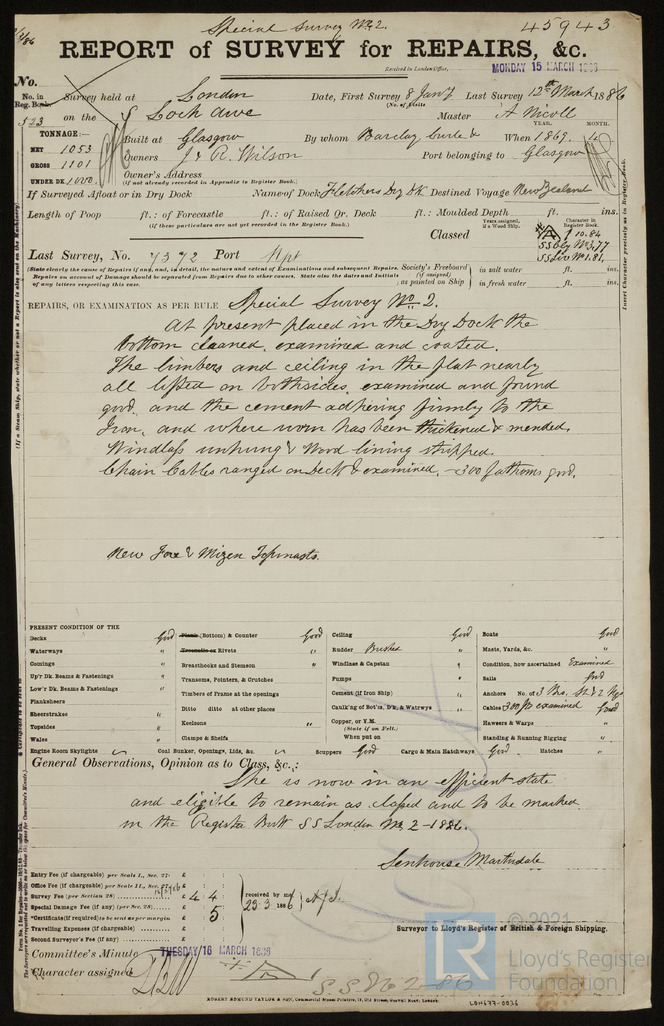 Special Survey No 2.
45943
REPORT of SURVEY for REPAIRS, &c.
Received in London Office,
MONDAY 15 MARCH 1886
No.
No. in Reg. Book. Survey held at London Date, First Survey 8 Jany Last Survey 12th March 1886
(No. of Visits
523 on the Loch Awe Master A Nicoll
YEAR. MONTH.
TONNAGE:— Built at Glasgow By whom Barclay Curle & When 1869. 4
NET 1053
GROSS 1101 Owners J & R. Wilson Port belonging to Glasgow
UNDER DK. 1000 Owner's Address
(if not already recorded in Appendix to Register Book.)
If Surveyed Afloat or in Dry Dock Name of Dock Fletchers Dry Dk Destined Voyage New Zealand
Length of Poop ft.: of Forecastle ft.: of Raised Qr. Deck ft.: Moulded Depth ft. ins.
(if these particulars are not yet recorded in the Register Book.)
Classed
Years assigned, if a Wood Ship.
Character in Register Book.
10.84
Last Survey, No. 7372 Port
(State clearly the cause of Repairs if any, and, in detail, the nature and extent of Examinations and subsequent Repairs.
Repairs on account of Damage should be separated from Repairs due to other causes. State also the dates and Initials
of any letters respecting this case.
Society's Freeboard (if assigned) as painted on Ship
in salt water ft. ins.
in fresh water ft. ins.
REPAIRS, OR EXAMINATION AS PER RULE Special Survey No 2.
At present placed in the Dry Dock the
bottom cleaned, examined and coated.
The limbers and ceiling in the flat nearly
all lifted on both sides, examined and found
good, and the cement adhering firmly to the
Iron, and where worn has been thickened & mended,
Windlass unhung & Wood lining stripped.
Chain Cables ranged on Deck & examined. — 300 fathoms good.
New Fore & Mizen Topmasts.
PRESENT CONDITION OF THE
Decks Good
Waterways "
Comings "
Up'r Dk. Beams & Fastenings "
Low'r Dk. Beams & Fastenings "
Planksheers
Sheerstrakes "
Topsides "
Wales "
Engine Room Skylights
Plank (Bottom) & Counter Good
Treenails or Rivets "
Breasthooks and Stemson "
Transoms, Pointers, & Crutches "
Timbers of Frame at the openings
Ditto ditto at other places
Keelsons "
Clamps & Shelfs
Coal Bunker, Openings, Lids, &c.
Ceiling Good
Rudder "
Windlass & Capstan "
Pumps "
Cement (if Iron Ship) "
Caulk'ng of Bot'm, D'k, & Watrwys "
Copper, or Y.M.
(State if on Felt.)
When put on
Scuppers Good Cargo & Main Hatchways Good Hatches "
Boats Good
Masts, Yards, &c. "
Condition, how ascertained Examined
Sails good
Anchors No. of 3 Bo.
Cables 300 fm examined good
Hawsers & Warps "
Standing & Running Rigging "
General Observations, Opinion as to Class, &c.:
She is now in an efficient state
and eligible to remain as classed and to be marked
in the Register Book SS London No 2-1886.
Senhouse Martindale
Entry Fee (if chargeable) per Scale I., Sec. 27: £
Office Fee (if chargeable) per Scale II., Sec. 27: £
Survey Fee (per Section 28) £ 4 4
Special Damage Fee (if any) (per Sec. 28) £
*Certificate (if required) to be sent as per margin £ 5
Travelling Expenses (if chargeable) £
Second Surveyor's Fee (if any) £
received by me
23.3 1886
Surveyor to Lloyd's Register of British & Foreign Shipping.
Committee's Minute TUESDAY 16 MARCH 1886
Character assigned
S.S. No 2-86
ROBERT EDMUND TAYLOR & SON, Commercial Steam Printers, 19, Old Street, Goswell Road, London.
LON677-0036
© 2021
LR
Lloyd's Register
Foundation